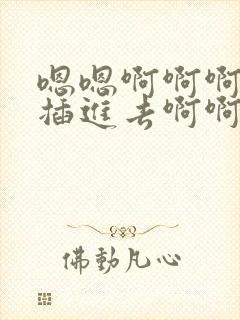 嗯嗯啊啊啊
插進去啊啊
佛動凡心